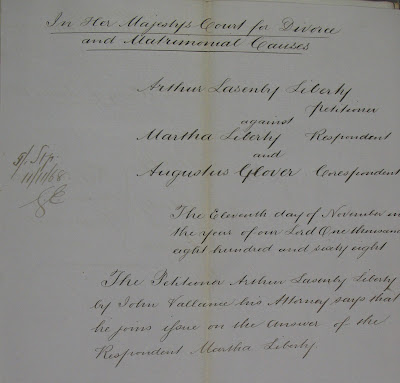 In Her Majesty's Court for Divorce
and Matrimonial Causes
Arthur Lasenby Liberty
Petitioner
against
Martha Liberty Respondent
and
Augustus Glover Corespondent
11/11/68
The Eleventh day of November in
the year of our Lord One thousand
eight hundred and sixty eight
The Petitioner Arthur Lasenby Liberty
by John Vallance his Attorney says that
he joins issue on the answer of the
Respondent Martha Liberty.